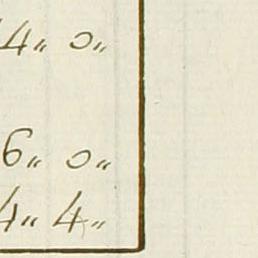 4„ 0„
6„ 0„
4„ 4„